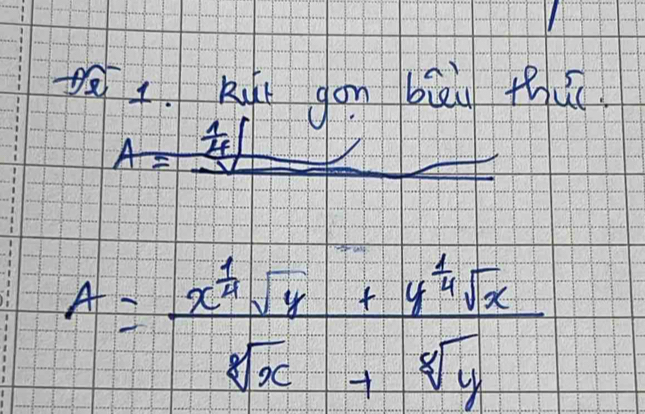 Đề 1. Rút gọn biểu thức.
A = x^{1/4} √y + y^{1/4} √x / ⁸√x + ⁸√y